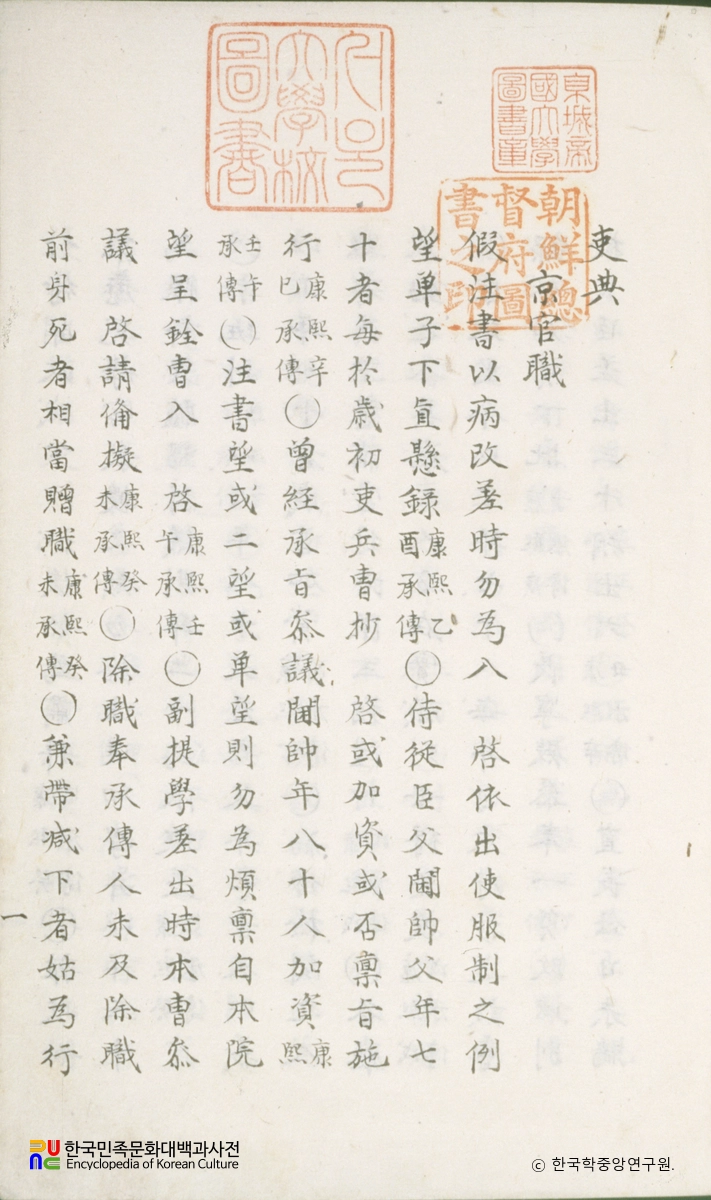 서울大學校圖書
京城帝國大學圖書章
朝鮮總督府圖書之印
吏典
京官職
假注書以病改差時勿為入 啓依出使服制之例
望單子下直懸錄康熙乙酉承傳○侍從臣父閫帥父年七
十者每於歲初吏兵曹抄 啓或加資或否稟旨施
行康熙辛巳承傳○曾經承旨叅議閫帥年八十人加資康熙
壬午承傳○注書望或二望或单望則勿為煩稟自本院
望呈銓曹入 啓康熙壬午承傳○副提學差出時本曹叅
議 啓請備擬康熙癸未承傳○除職奉承傳人未及除職
前身死者相當贈職康熙癸未承傳○兼帶减下者姑為行
一
한국민족문화대백과사전
Encyclopedia of Korean Culture
ⓒ 한국학중앙연구원.